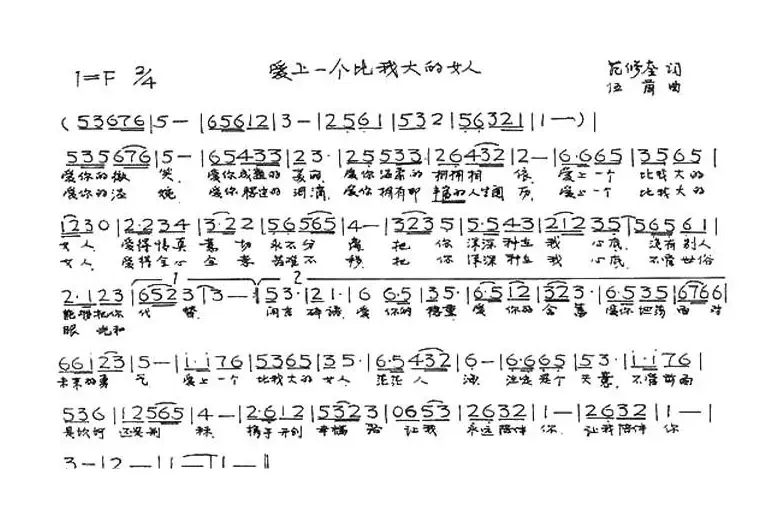 1=F 2/4 爱上一个比我大的女人 范修奎 词
伍 曲
(53676|5—|65612|3—|2561|532|56321|1—)|
535676|5—|65433|23·|252533|26432|2—|6·665|3565|
爱你的微 笑, 爱你成熟的 美丽, 爱你温柔的 拥抱相 依, 爱上一个 比我大的
爱你的 爱你 的 爱你拥有那 丰富的人生阅 历, 爱上一个 比我大的
1230|2234|3·22|56565|4—|3235|5·543|21235|56561|
女人, 爱得情真 意 切 永不分 离 把 你 深深种在 我 心底, 没有别人
女人, 爱得全心 全 意 不 移, 把 你 深深种在 我 心底, 不管世俗
1 2
2·123|6523|3—:|53·|21·|6 6·5|35·|6·512|323·|6·535|6766|
能 把你 代 替. 爱 你的 稳重 爱 你的 含 蓄 爱你坦荡 面对
眼 光和
66123|5—|1·176|5365|35·|6·5432|6—|6·665|53·|1·176|
未来的勇 气 爱上一个 比我大的 女人 茫茫人 海 注定是个 天意, 不管前面
536|12565|4—|2·612|5323|0653|2632|1—|2632|1—|
是坎坷 还是荆 棘, 携手开创 幸福 路 让我 永远陪伴 你, 让我陪伴 你
3—|2—|1—|1—‖